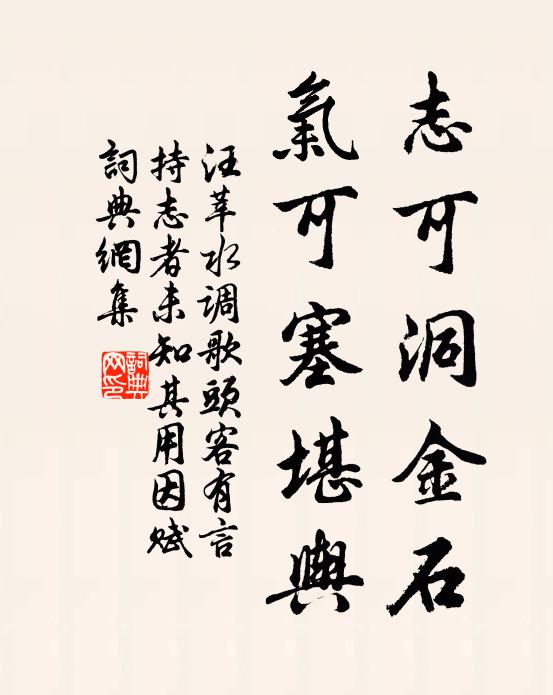 志可洞金石
氣可塞堪輿
汪莘水调歌頭客有言
持志者未知其用因赋
詞典網集
詞典
网印